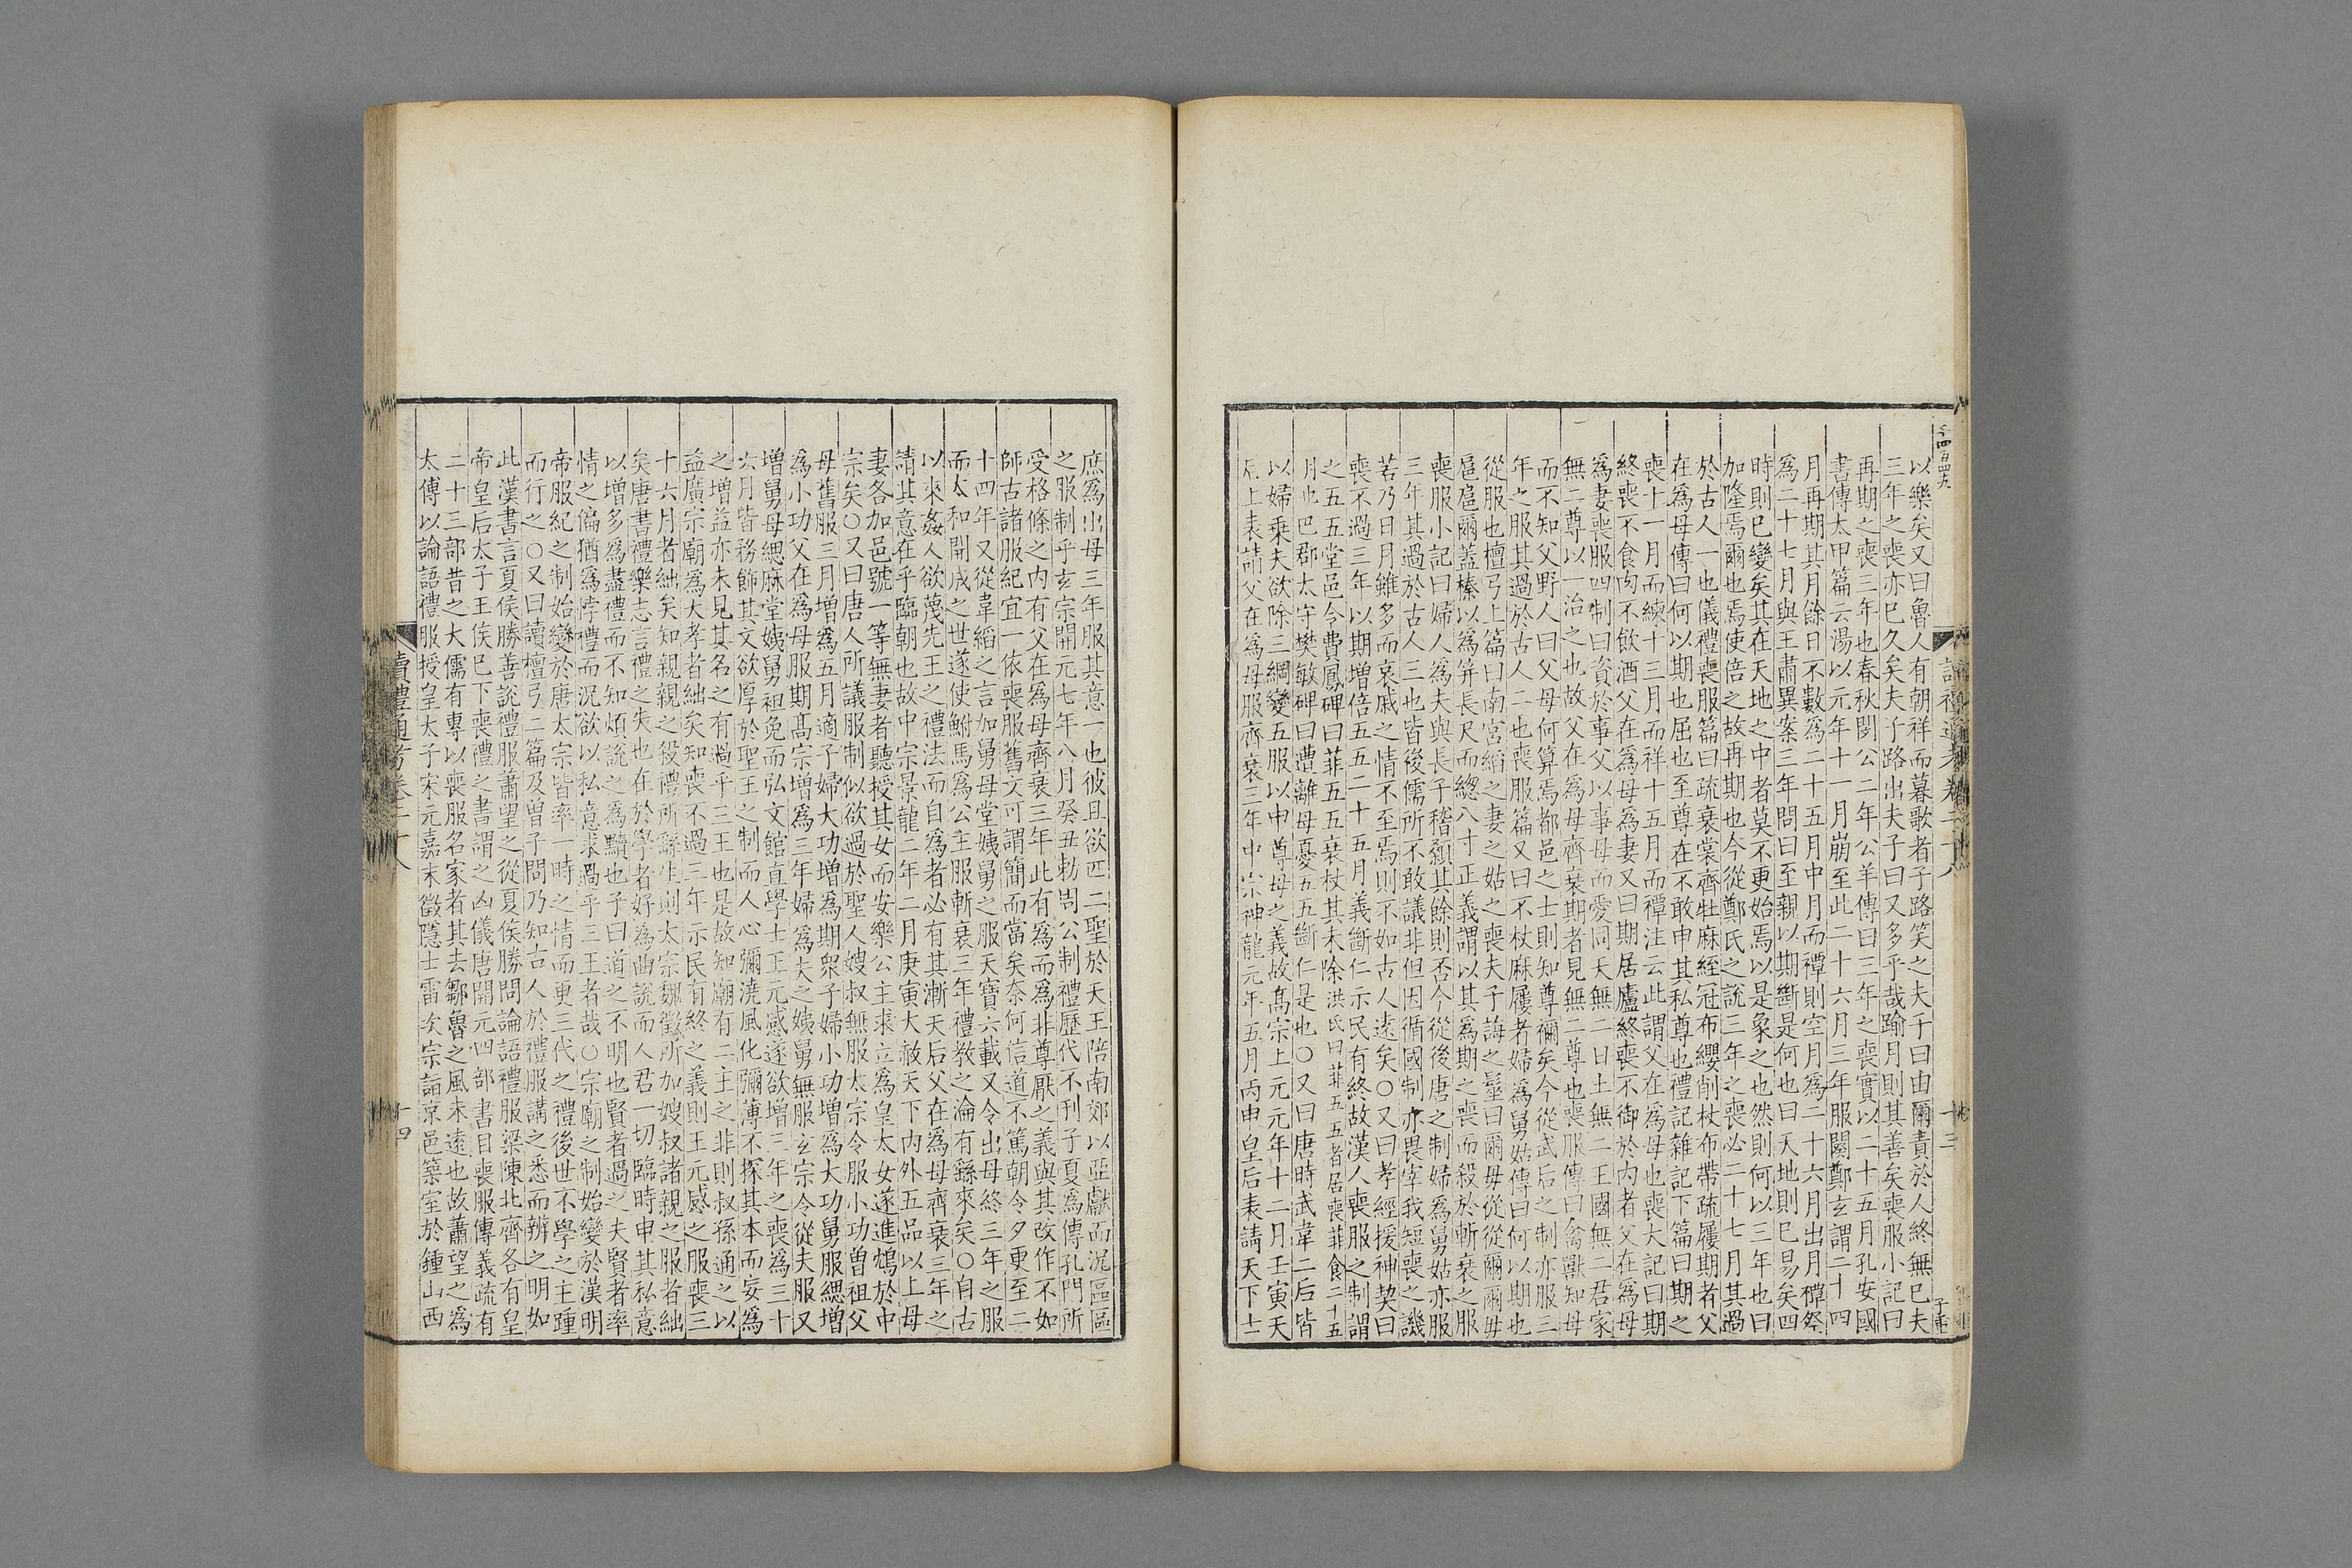 字四百四九
讀禮通考卷二十八
十三
以樂矣又曰魯人有朝祥而暮歌者子路笑之夫子曰由爾責於人終無已夫
三年之喪亦已久矣夫子路出夫子曰又多乎哉踰月則其善矣喪服小記曰
再期之喪三年也春秋閔公二年公羊傳曰三年之喪實以二十五月孔安國
書傳太甲篇云湯以元年十一月崩至此二十六月三年服闋鄭玄謂二十四
月再期其月餘日不數爲二十五月中月而禫則空月爲二十六月出月禫祭
爲二十七月與王肅異案三年問曰至親以期斷是何也曰天地則已易矣四
時則已變矣其在天地之中者莫不更始焉以是象之也然則何以三年也曰
加隆焉爾也焉使倍之故再期也今從鄭氏之說三年之喪必二十七月其過
於古人一也儀禮喪服篇曰疏衰裳齊牡麻絰冠布纓削杖布帶疏屨期者父
在爲母傳曰何以期也屈也至尊在不敢申其私尊也禮記雜記下篇曰期之
喪十一月而練十三月而祥十五月而禫注云此謂父在爲母也喪大記曰期
終喪不食肉不飲酒父在爲母爲妻又曰期居廬終喪不御於內者父在爲母
爲妻喪服四制曰資於事父以事母而愛同天無二日土無二王國無二君家
無二尊以一治之也故父在爲母齊衰期者見無二尊也喪服傳曰禽獸知母
而不知父野人曰父母何算焉都邑之士則知尊禰矣今從武后之制亦服三
年之服其過於古人二也喪服篇又曰不杖麻屨者婦爲舅姑傳曰何以期也
從服也檀弓上篇曰南宮縚之妻之姑之喪夫子誨之髽曰爾毋從從爾爾毋
扈扈爾蓋榛以爲笄長尺而總八寸正義謂以其爲期之喪而殺於斬衰之服
喪服小記曰婦人爲夫與長子稽顙其餘則否今從後唐之制婦爲舅姑亦服
三年其過於古人三也皆後儒所不敢議非但因循國制亦畏宰我短喪之譏
若乃日月雖多而哀戚之情不至焉則不如古人遠矣○又曰孝經援神契曰
喪不過三年以期增倍五五二十五月義斷仁示民有終故漢人喪服之制謂
之五五堂邑令費鳳碑曰菲五五衰杖其未除洪氏曰菲五五者居喪菲食二十五
月也巴郡太守樊敏碑曰遭離母憂五五斷仁是也○又曰唐時武韋二后皆
以婦乗夫欲除三綱變五服以申尊母之義故髙宗上元元年十二月壬寅天
后上表請父在爲母服齊衰三年中宗神龍元年五月丙申皇后表請天下士
庶爲出母三年服其意一也彼且欲匹二聖於天王陪南郊以亞獻而況區區
之服制乎玄宗開元七年八月癸丑勅周公制禮歷代不刊子夏爲傳孔門所
受格條之內有父在爲母齊衰三年此有爲而爲非尊厭之義與其改作不如
師古諸服紀宜一依喪服舊文可謂簡而當矣奈何信道不篤朝令夕更至二
十四年又從韋縚之言加舅母堂姨舅之服天寶六載又令出母終三年之服
而太和開成之世遂使駙馬爲公主服斬衰三年禮敎之淪有繇來矣○自古
以來姦人欲蔑先王之禮法而自爲者必有其漸天后父在爲母齊衰三年之
請其意在乎臨朝也故中宗景龍二年二月庚寅大赦天下內外五品以上母
妻各加邑號一等無妻者聽授其女而安樂公主求立爲皇太女遂進鴆於中
宗矣○又曰唐人所議服制似欲過於聖人嫂叔無服太宗令服小功曾祖父
母舊服三月增爲五月適子婦大功增爲期衆子婦小功增爲大功舅服緦增
爲小功父在爲母服期髙宗增爲三年婦爲夫之姨舅無服玄宗令從夫服又
增舅母緦麻堂姨舅袒免而弘文館直學士王元感遂欲增三年之喪爲三十
六月皆務飾其文欲厚於聖王之制而人心彌澆風化彌薄不探其本而妄爲
之增益亦未見其名之有過乎三王也是故知廟有二主之非則叔孫通之以
益廣宗廟爲大孝者絀矣知喪不過三年示民有終之義則王元感之服喪三
十六月者絀矣知親親之殺禮所繇生則太宗魏徵所加嫂叔諸親之服者絀
矣唐書禮樂志言禮之失也在於學者好爲曲說而人君一切臨時申其私意
以增多爲盡禮而不知煩說之爲黷也子曰道之不明也賢者過之夫賢者率
情之偏猶爲悖禮而況欲以私意求過乎三王者哉○宗廟之制始變於漢明
帝服紀之制始變於唐太宗皆率一時之情而更三代之禮後世不學之主踵
而行之○又曰讀檀弓二篇及曾子問乃知古人於禮服講之悉而辨之明如
此漢書言夏侯勝善說禮服蕭望之從夏侯勝問論語禮服梁陳北齊各有皇
帝皇后太子王侯已下喪禮之書謂之凶儀唐開元四部書目喪服傳義疏有
二十三部昔之大儒有專以喪服名家者其去鄒魯之風未遠也故蕭望之爲
太傅以論語禮服授皇太子宋元嘉末徵隱士雷次宗詣京邑築室於鍾山西
讀禮通考卷二十八
十四